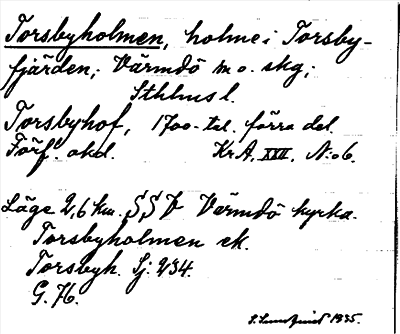 Torsbyholmen, holme i Torsby-
fjärden; Värmdö m o. skg;
Sthlms l.
Torsbyhof, 1700-tal. förra del.
Förf. okd. KrA. XXII. N:o 6.
Läge 2,6 km. SSV Värmdö kyrka.
Torsbyholmen ek.
Torsbyh. Sj: 234.
G. 76.
1935.